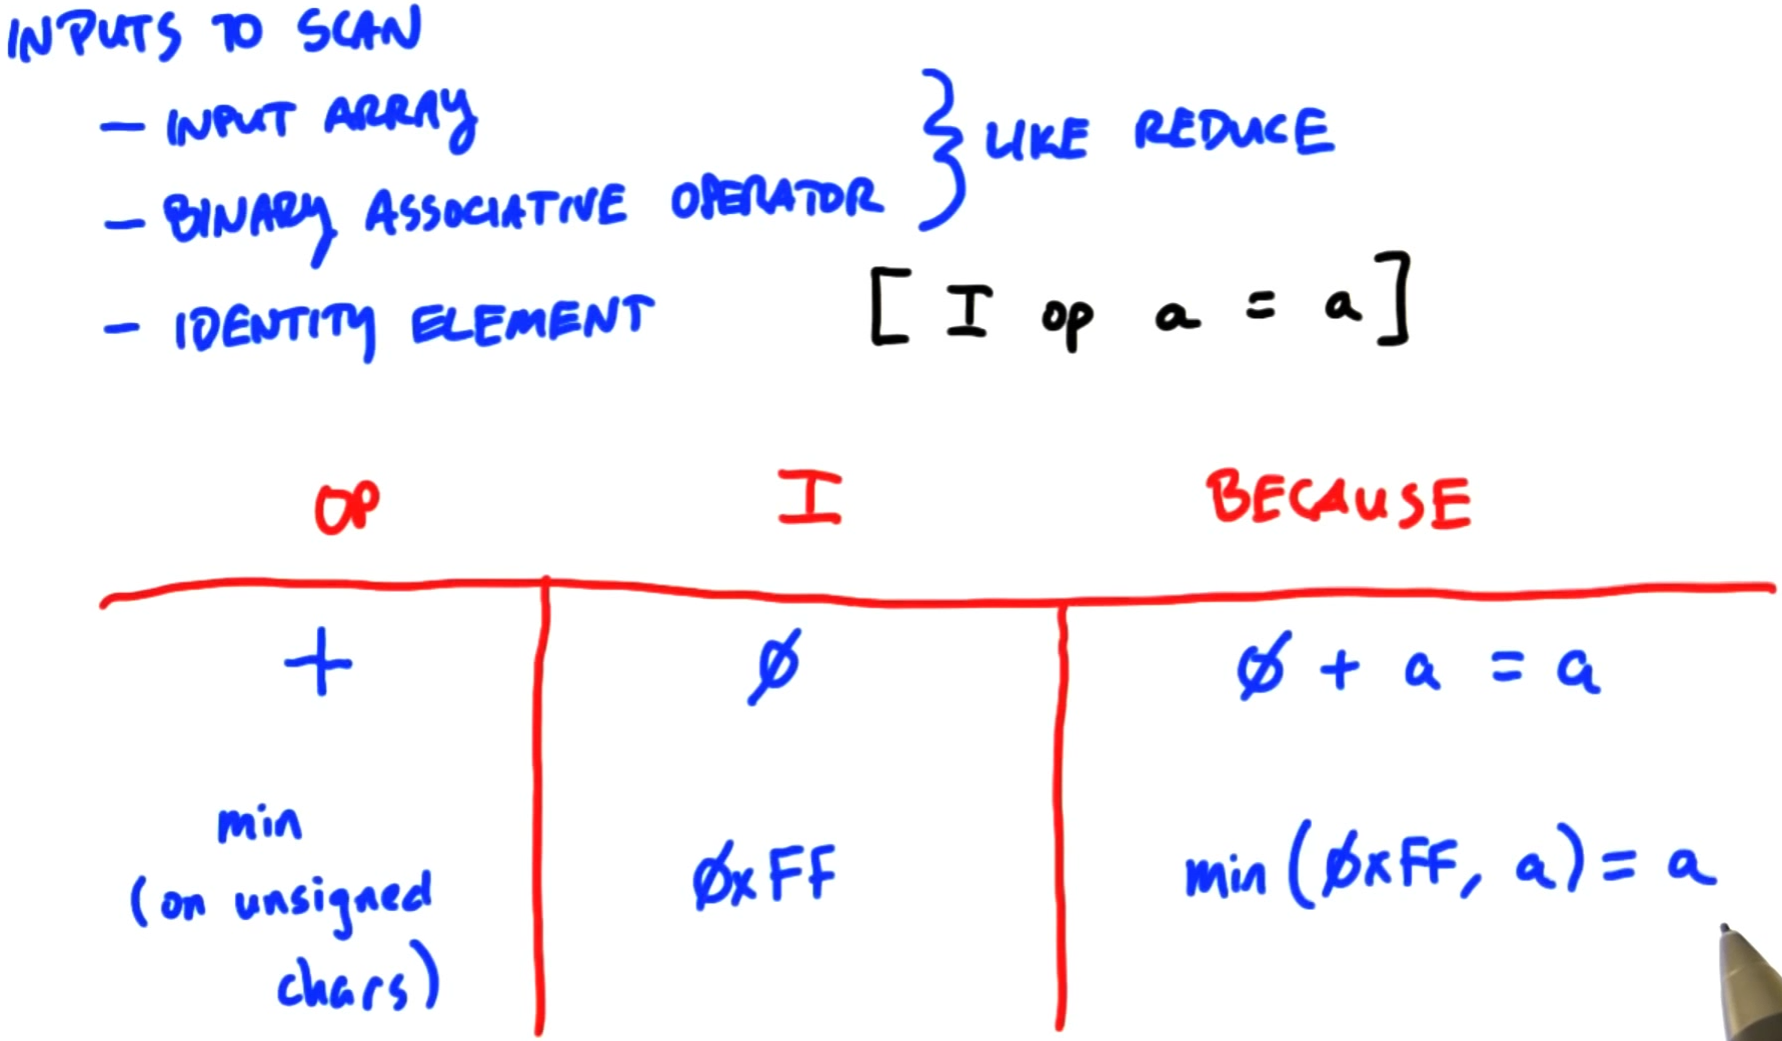 INPUTS TO SCAN
- INPUT ARRAY
- BINARY ASSOCIATIVE OPERATOR } LIKE REDUCE
- IDENTITY ELEMENT [ I op a = a ]
OP I BECAUSE
+ Ø Ø + a = a
min
(on unsigned
chars)
ØxFF min (ØxFF, a) = a